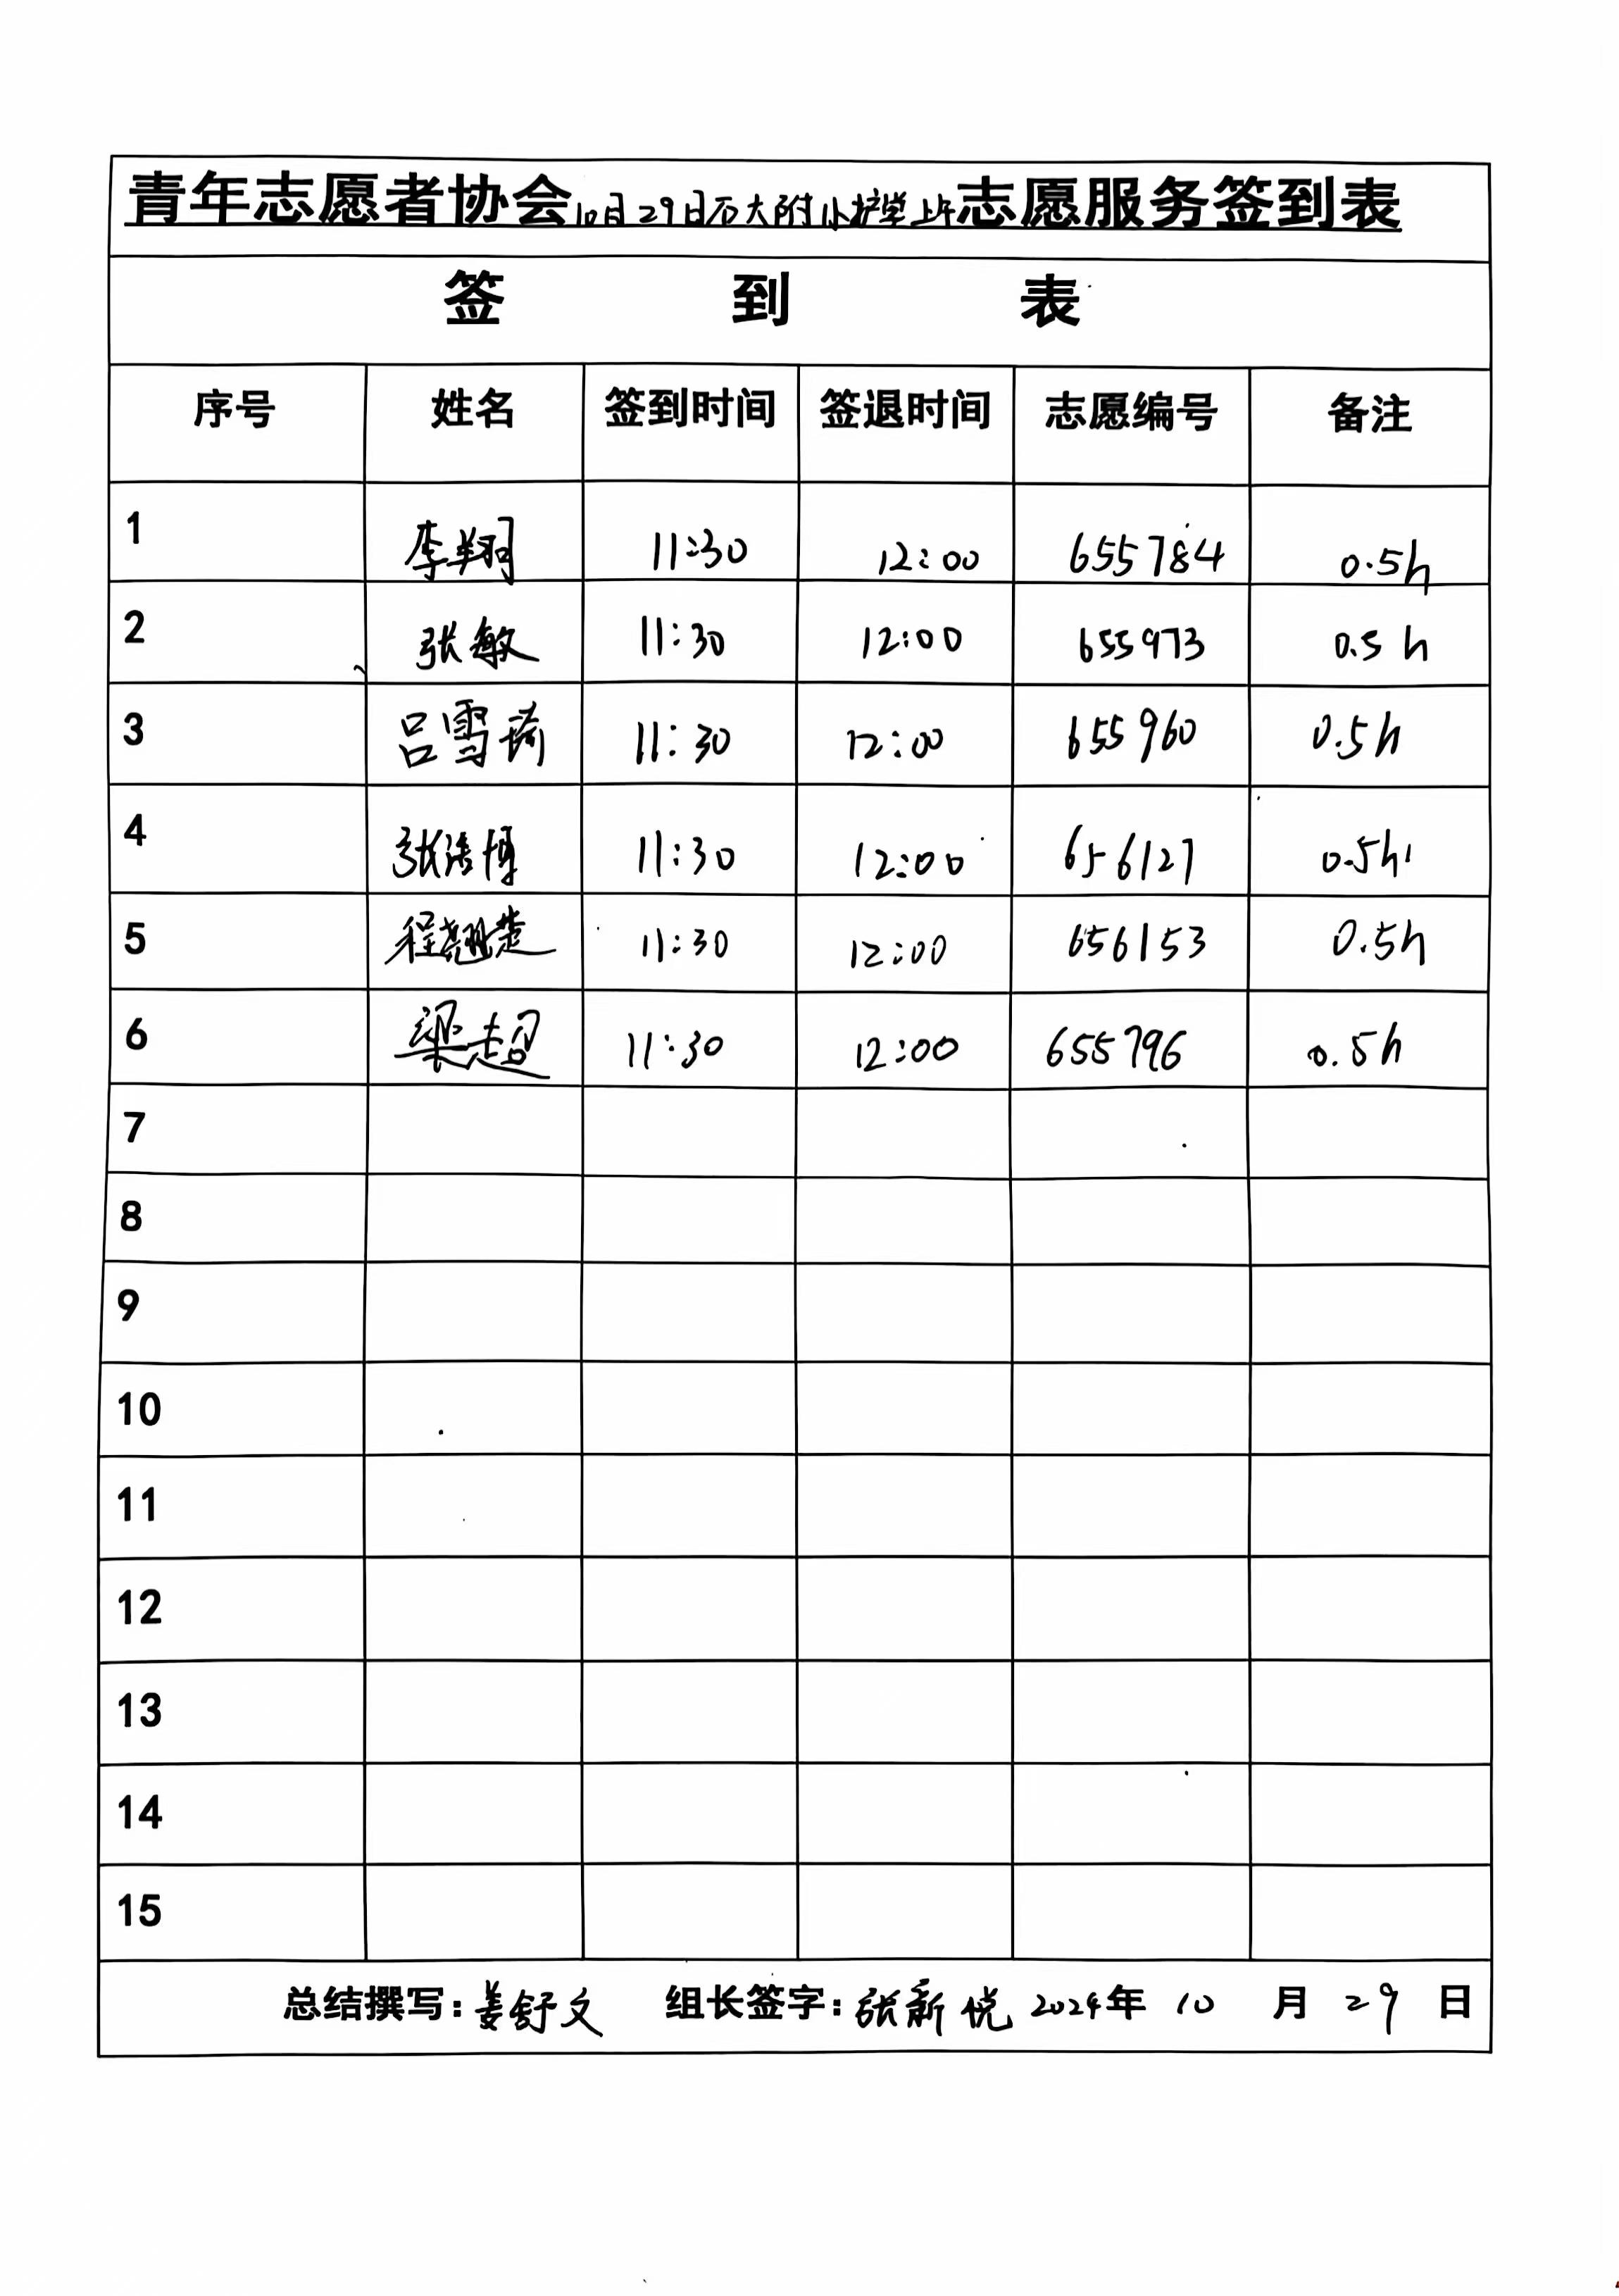 青年志愿者协会10月29日石大附小护学上午志愿服务签到表
签 到 表
序号 姓名 签到时间 签退时间 志愿编号 备注
1 李翔 11:30 12:00 655784 0.5h
2 张敏 11:30 12:00 655973 0.5h
3 吕雪琦 11:30 12:00 655960 0.5h
4 张浩博 11:30 12:00 656127 0.5h
5 程翘楚 11:30 12:00 656153 0.5h
6 梁超 11:30 12:00 655796 0.5h
7
8
9
10
11
12
13
14
15
总结撰写：姜舒文 组长签字：张新悦 2024年 10 月 29 日